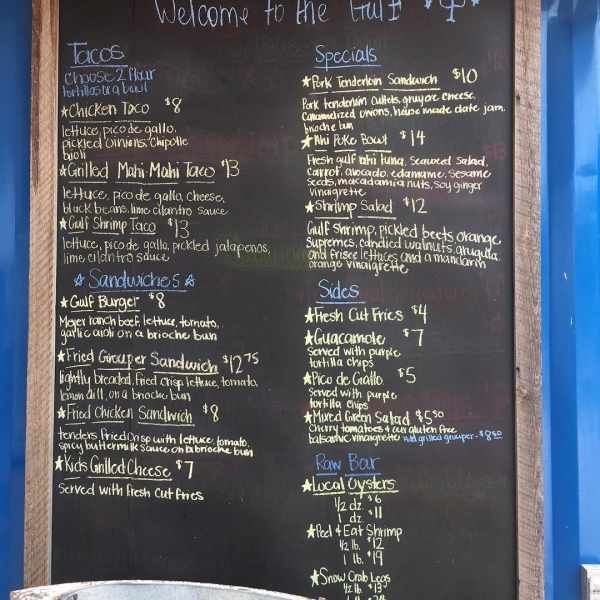 Welcome to the Gulf
Tacos
Choose 2 flour
tortillas or a bowl
Chicken Taco $8
lettuce, pico de gallo,
pickled onions, chipotle
aioli
Grilled Mahi-Mahi Taco $13
lettuce, pico de gallo, cheese,
black beans, lime cilantro sauce
Gulf Shrimp Taco $13
lettuce, pico de gallo, pickled jalapeños,
lime cilantro sauce
Sandwiches
Gulf Burger $8
Meyer ranch beef, lettuce, tomato,
garlic aioli on a brioche bun
Fried Grouper Sandwich $12.75
lightly breaded, fried crisp lettuce, tomato,
lemon dill, on a brioche bun
Fried Chicken Sandwich $8
tenders fried crisp with lettuce, tomato,
spicy buttermilk sauce on a brioche bun
Kids Grilled Cheese $7
Served with fresh cut fries
Specials
Pork Tenderloin Sandwich $10
Pork tenderloin cutlets, gruyere cheese,
Caramelized onions, house made date jam,
brioche bun
Ahi Poke Bowl $14
Fresh gulf ahi tuna, seaweed salad,
carrot, avocado, edamame, sesame
seeds, macadamia nuts, soy ginger
vinaigrette
Shrimp Salad $12
Gulf shrimp, pickled beets, orange
supremes, candied walnuts, arugula,
and frisee lettuces and a mandarin
orange vinaigrette
Sides
Fresh Cut Fries $4
Guacamole $7
Served with purple
tortilla chips
Pico de Gallo $5
Served with purple
tortilla chips
Mixed Green Salad $5.50
Cherry tomatoes + our gluten free
balsamic vinaigrette add grilled grouper - $8.50
Raw Bar
Local Oysters
1/2 dz. $6
1 dz. $11
Peel & Eat Shrimp
1/2 lb. $12
1 lb. $19
Snow Crab Legs
1/2 lb. $13